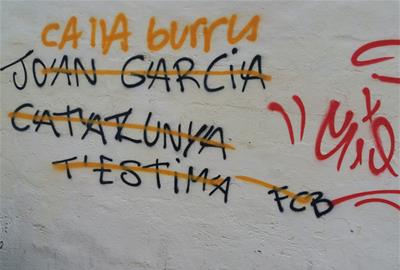 CALLA burrus
JOAN GARCIA
CATALUNYA
T'ESTIMA
FCB